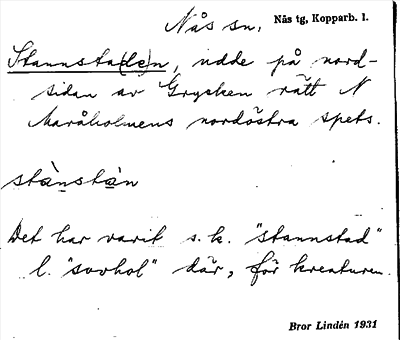 Nås sn. Nås tg, Kopparb. l.
Stannsta(de)n, udde på nord-
sidan av Grycken rätt N
Maråholmens nordöstra spets.
stànstàn
Det har varit s.k. "stannstad"
l. "sovhol" där, för kreaturen.
Bror Lindén 1931